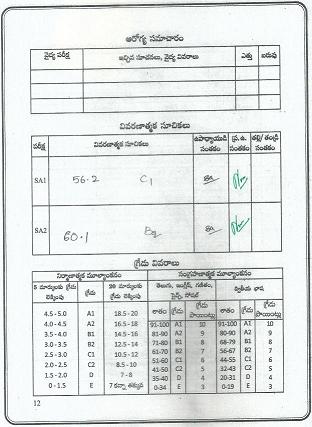 ఆరోగ్య సమాచారం
వైద్య పరీక్ష ఇచ్చిన సూచనలు, వైద్య వివరాలు ఎత్తు బరువు
వివరణాత్మక సూచికలు
పరీక్ష వివరణాత్మక సూచికలు ఉపాధ్యాయుడి సంతకం ప్ర.ఉ. సంతకం తల్లి/ తండ్రి సంతకం
SA1 56.2 C1
SA2 60.1 B2
గ్రేడు వివరాలు
నిర్మాణాత్మక మూల్యాంకనం సంగ్రహణాత్మక మూల్యాంకనం
5 మార్కులకు లెక్కింపు గ్రేడు 20 మార్కులకు లెక్కింపు తెలుగు, ఇంగ్లీష్, గణితం, సైన్స్, సోషల్ ద్వితీయ భాష
శాతం గ్రేడు గ్రేడు పాయింట్లు శాతం గ్రేడు గ్రేడు పాయింట్లు
4.5 - 5.0 A1 18.5 - 20 91-100 A1 10 91-100 A1 10
4.0 - 4.5 A2 16.5 - 18 81-90 A2 9 80-90 A2 9
3.5 - 4.0 B1 14.5 - 16 71-80 B1 8 68-79 B1 8
3.0 - 3.5 B2 12.5 - 14 61-70 B2 7 56-67 B2 7
2.5 - 3.0 C1 10.5 - 12 51-60 C1 6 44-55 C1 6
2.0 - 2.5 C2 8.5 - 10 41-50 C2 5 32-43 C2 5
1.5 - 2.0 D 7 - 8 35-40 D 4 20-31 D 4
0 - 1.5 E 7 కన్నా తక్కువ 0-34 E 3 0-19 E 3
12